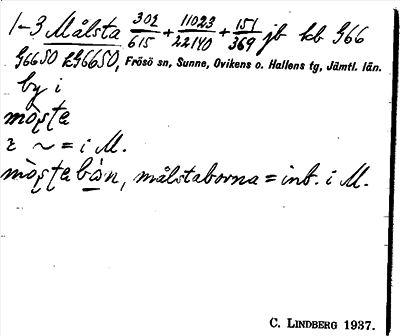 1-3 Målsta 302/615 + 11023/22140 + 151/369 jb kb 966
96650 k96650, Frösö sn, Sunne, Ovikens o. Hallens tg, Jämtl. län.
by i
mòʂʈa
2 ~ = i M.
målstaborna = inb. i M.
C. LINDBERG 1937.